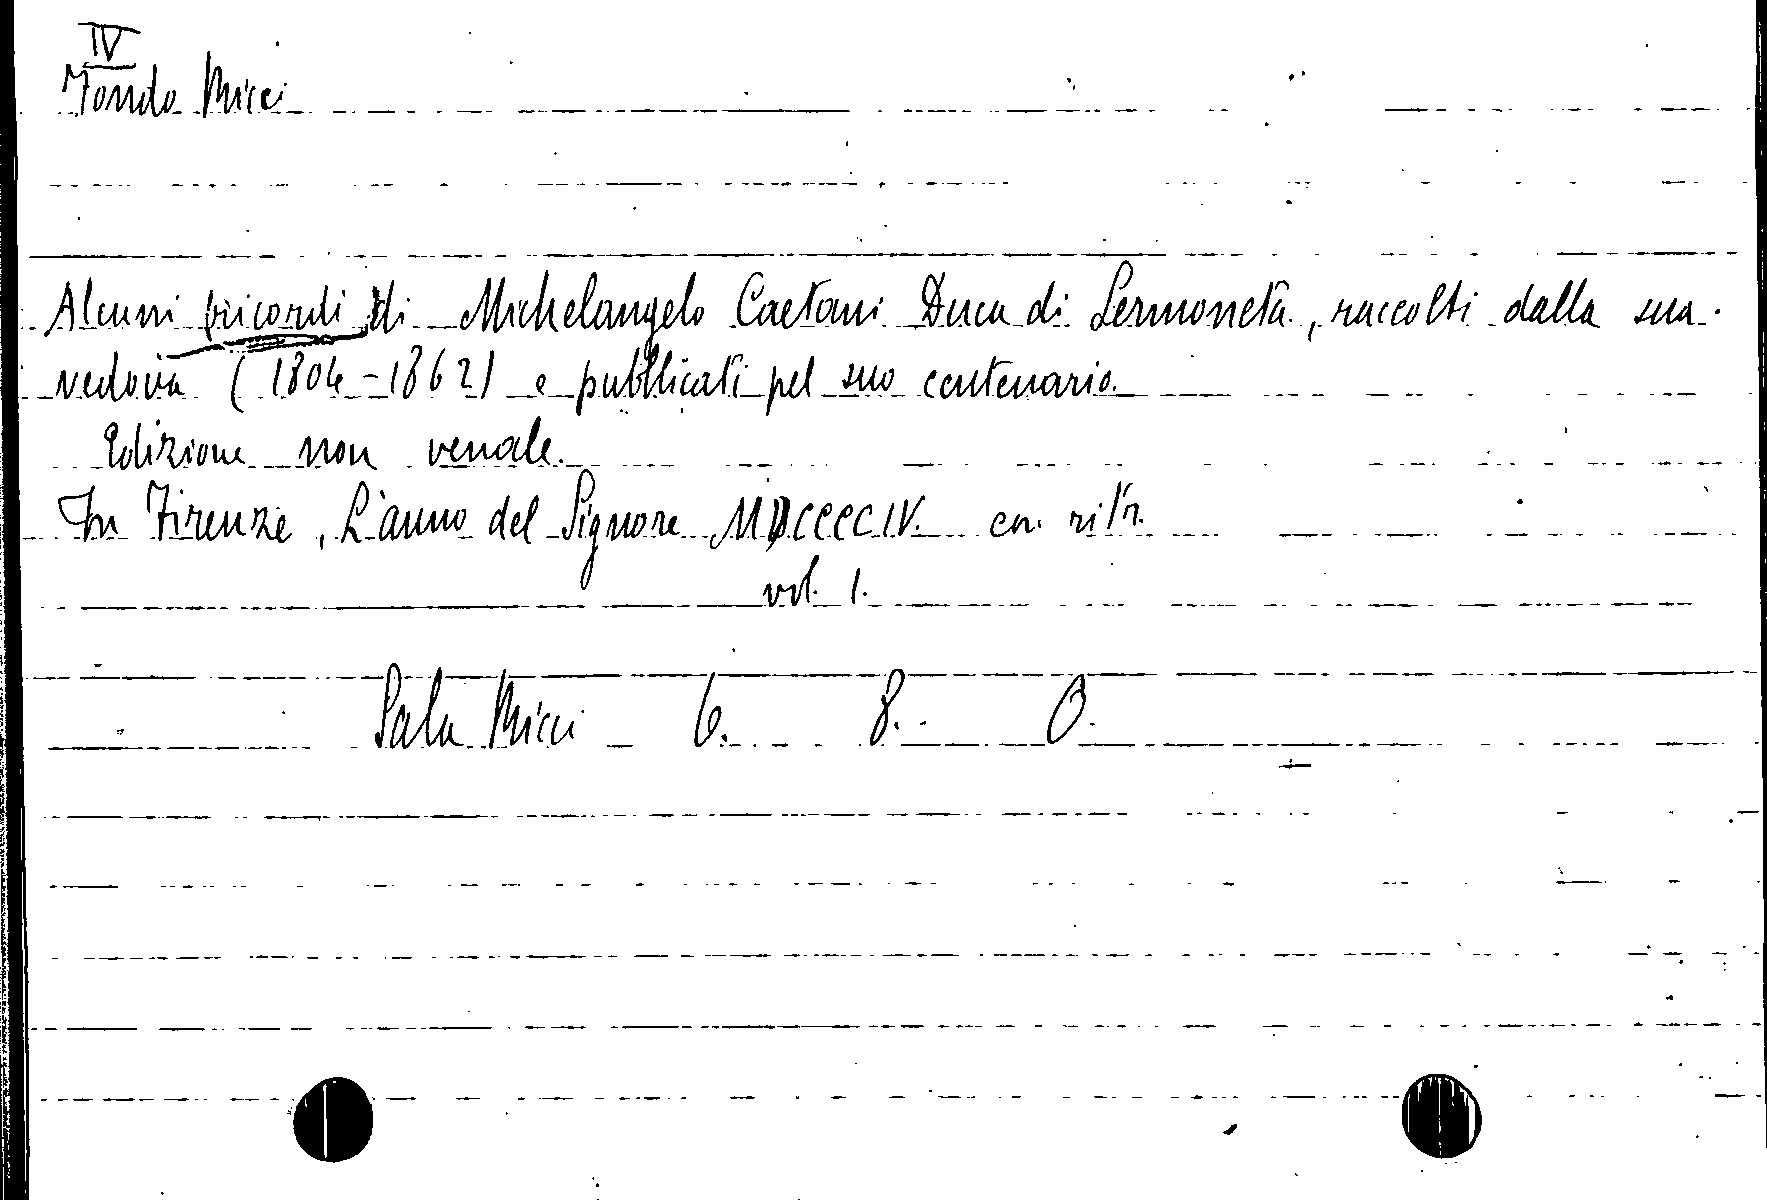 IV
Fondo Micci
Alcuni ricordi di Michelangelo Caetani Duca di Sermoneta, raccolti dalla sua
vedova (1804-1862) e pubblicati pel suo centenario.
Edizione non venale.
In Firenze, L'anno del Signore MDCCCCIV. con ritr.
vol. 1.
Sala Micci 6. 8. 0.